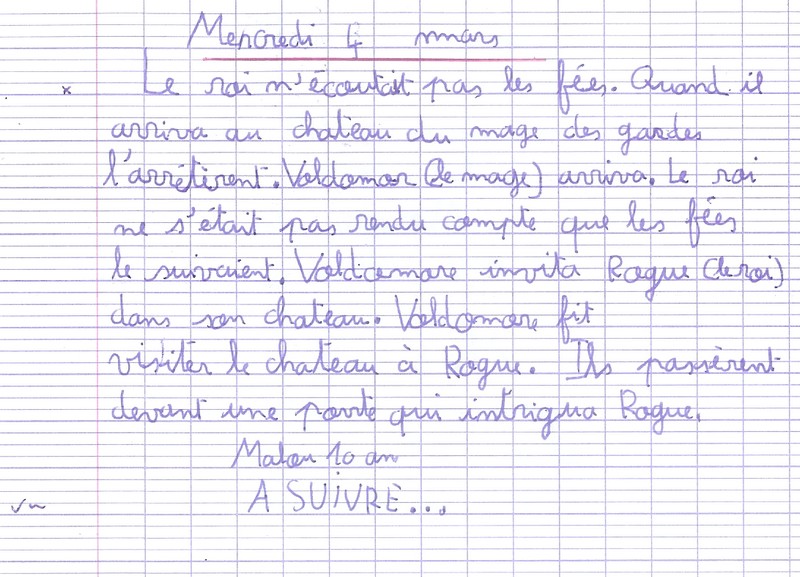 Mercredi 4 mars
Le roi n'écoutait pas les fées. Quand il
arriva au chateau du mage des gardes
l'arrêtirent. Valdomar (le mage) arriva. Le roi
ne s'était pas rendu compte que les fées
le suivaient. Valdomare invita Rogue (le roi)
dans son chateau. Valdomare fit
visiter le chateau à Rogue. Ils passèrent
devant une porte qui intrigua Rogue.
10 an
A SUIVRE...